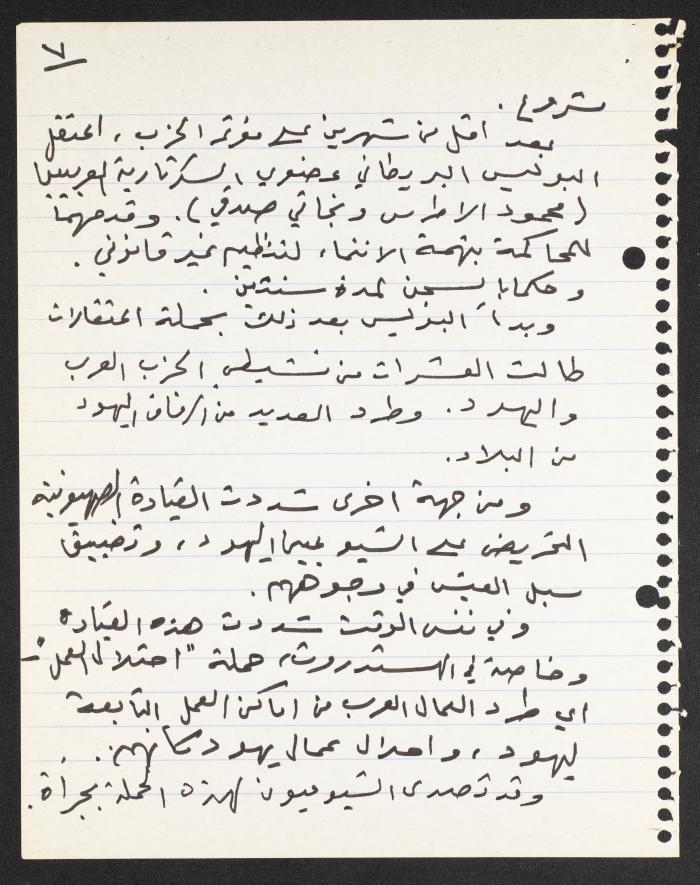 ٧
مشروع.
بعد اقل من شهرين على مؤتمر الحزب، اعتقل
البوليس البريطاني عضوي السكرتارية العربيين
(محمود الاطرش ونجاتي صدقي). وقدمهما
للمحاكمة بتهمة الانتماء لتنظيم غير قانوني.
وحكما بالسجن لمدة سنتين.
وبدأ البوليس بعد ذلك بحملة اعتقالات
طالت العشرات من نشيطي الحزب العرب
واليهود. وطرد العديد من الرفاق اليهود
من البلاد.
ومن جهة اخرى شددت القيادة الصهيونية
التحريض على الشيوعيين اليهود، وتضييق
سبل العيش في وجوههم.
وفي نفس الوقت شددت هذه القيادة
وخاصة في الهستدروت، حملة "احتلال العمل" -
اي طرد العمال العرب من اماكن العمل التابعة
ليهود، واحلال عمال يهود مكانهم.
وقد تصدى الشيوعيون لهذه الحملة بجرأة.